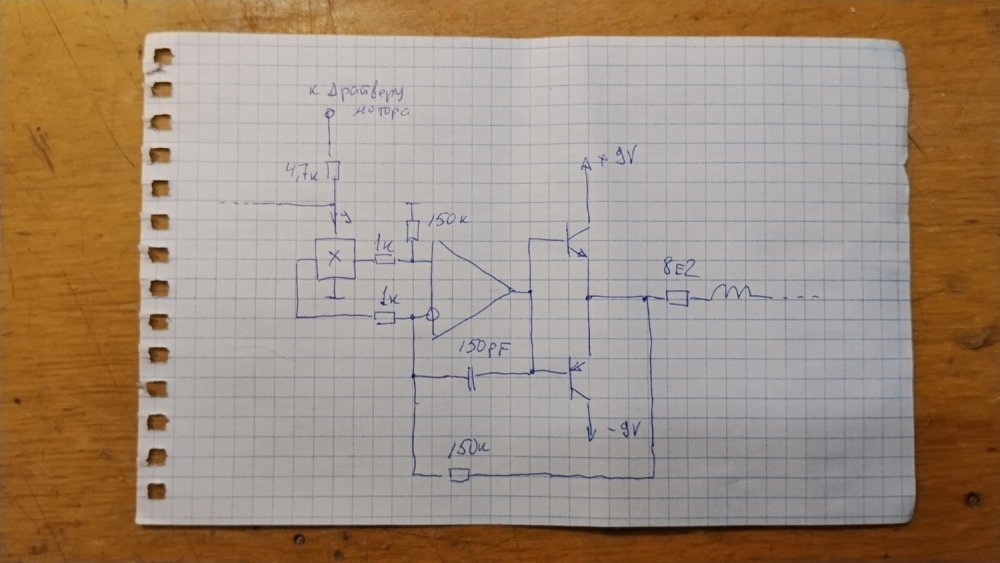 к драйверу
мотора
4,7к
+9V
150к
1к
X
8E2
1к
150pF
-9V
150к